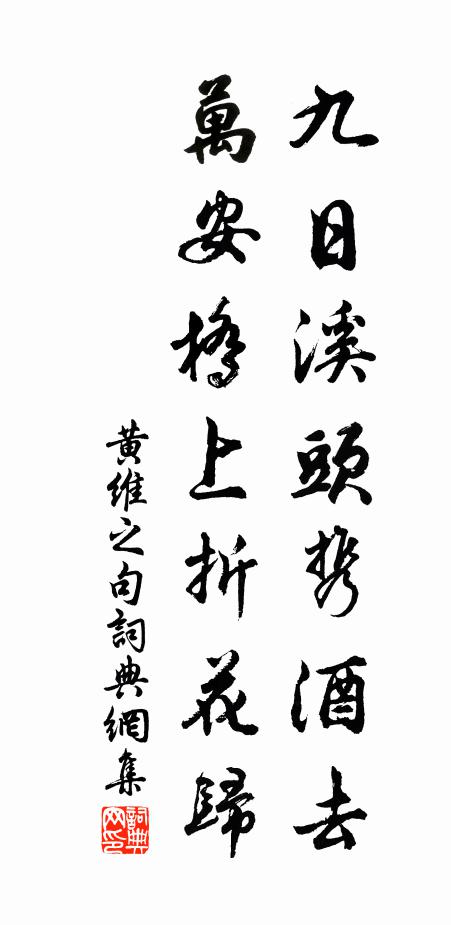 九日溪頭携酒去
萬安橋上折花歸
黃維之句詞典網集
詞典网印